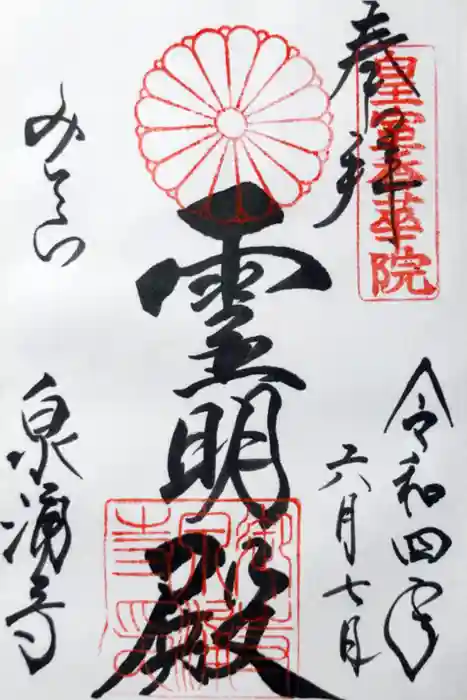 奉拝
皇室香華院
令和四年
六月七日
霊明殿
みてら
泉涌寺